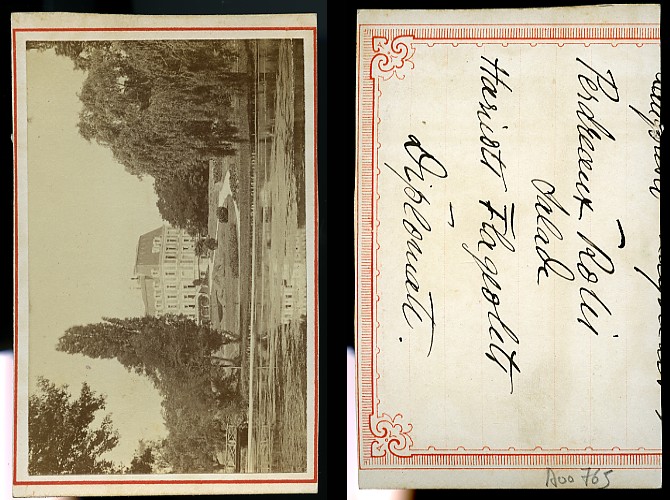 Perdreaux Rotis
Salade
Haricots Flageolets
Diplomate.
A00 765